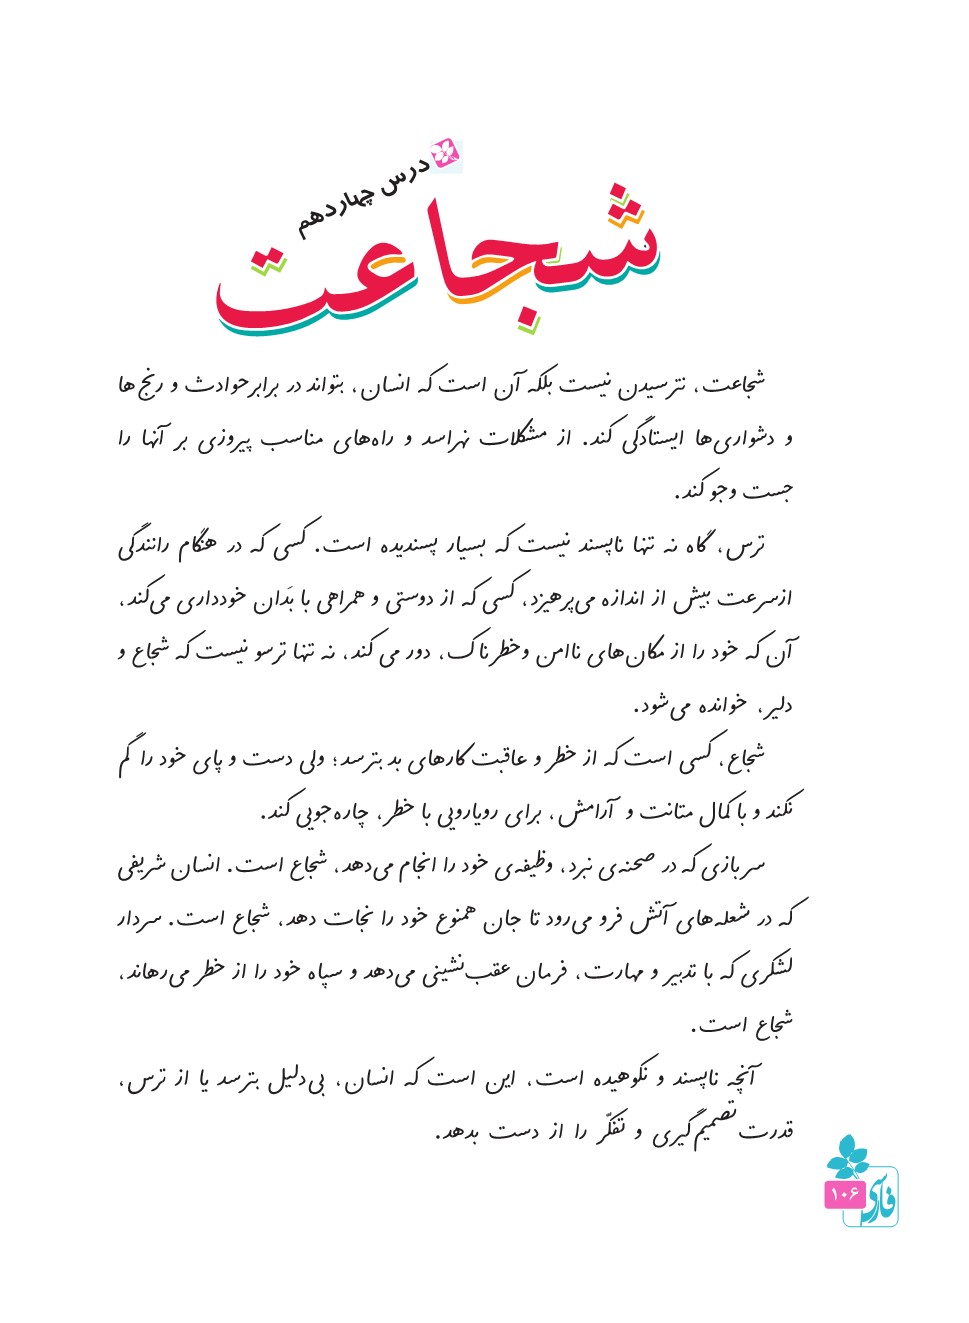 درس چهاردهم
شجاعت
شجاعت، نترسیدن نیست بلکه آن است که انسان، بتواند در برابر حوادث و رنج‌ها
و دشواری‌ها ایستادگی کند. از مشکلات نهراسد و راه‌های مناسب پیروزی بر آنها را
جست وجو کند.
ترس، گاه نه تنها ناپسند نیست که بسیار پسندیده است. کسی که در هنگام رانندگی
از سرعت بیش از اندازه می‌پرهیزد، کسی که از دوستی و همراهی با بَدان خودداری می‌کند،
آن که خود را از مکان‌های ناامن وخطرناک، دور می کند، نه تنها ترسو نیست که شجاع و
دلیر، خوانده می‌شود.
شجاع، کسی است که از خطر و عاقبت کارهای بد بترسد؛ ولی دست و پای خود را گم
نکند و با کمال متانت و آرامش، برای رویارویی با خطر، چاره‌جویی کند.
سربازی که در صحنه‌ی نبرد، وظیفه‌ی خود را انجام می‌دهد، شجاع است. انسان شریفی
که در شعله‌های آتش فرو می‌رود تا جان همنوع خود را نجات دهد، شجاع است. سردار
لشکری که با تدبیر و مهارت، فرمان عقب‌نشینی می‌دهد و سپاه خود را از خطر می‌رهاند،
شجاع است.
آنچه ناپسند و نکوهیده است، این است که انسان، بی‌دلیل بترسد یا از ترس،
قدرت تصمیم‌گیری و تفکّر را از دست بدهد.
فارسی
۱۰۶